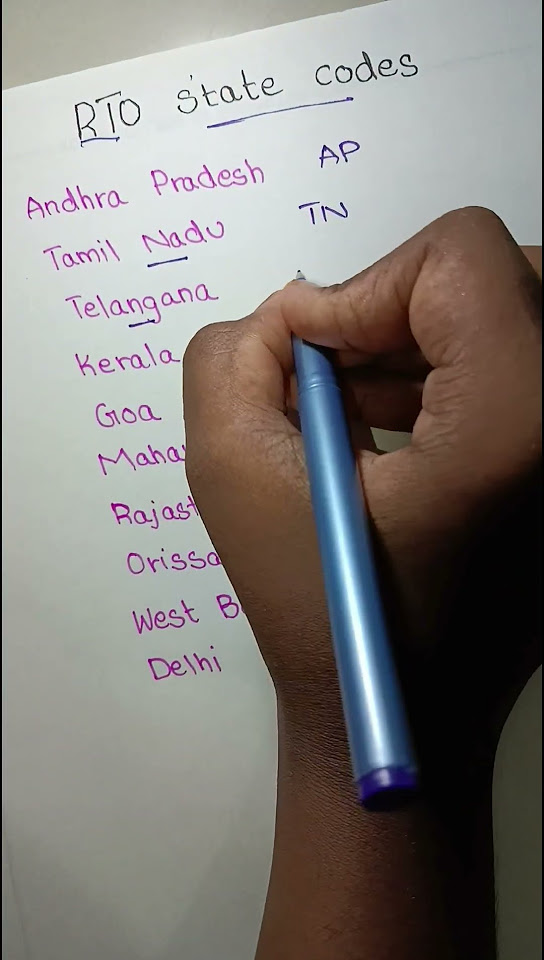 RTO state codes
Andhra Pradesh AP
Tamil Nadu TN
Telangana
Kerala
Goa
Maha
Rajast
Orissa
West B
Delhi